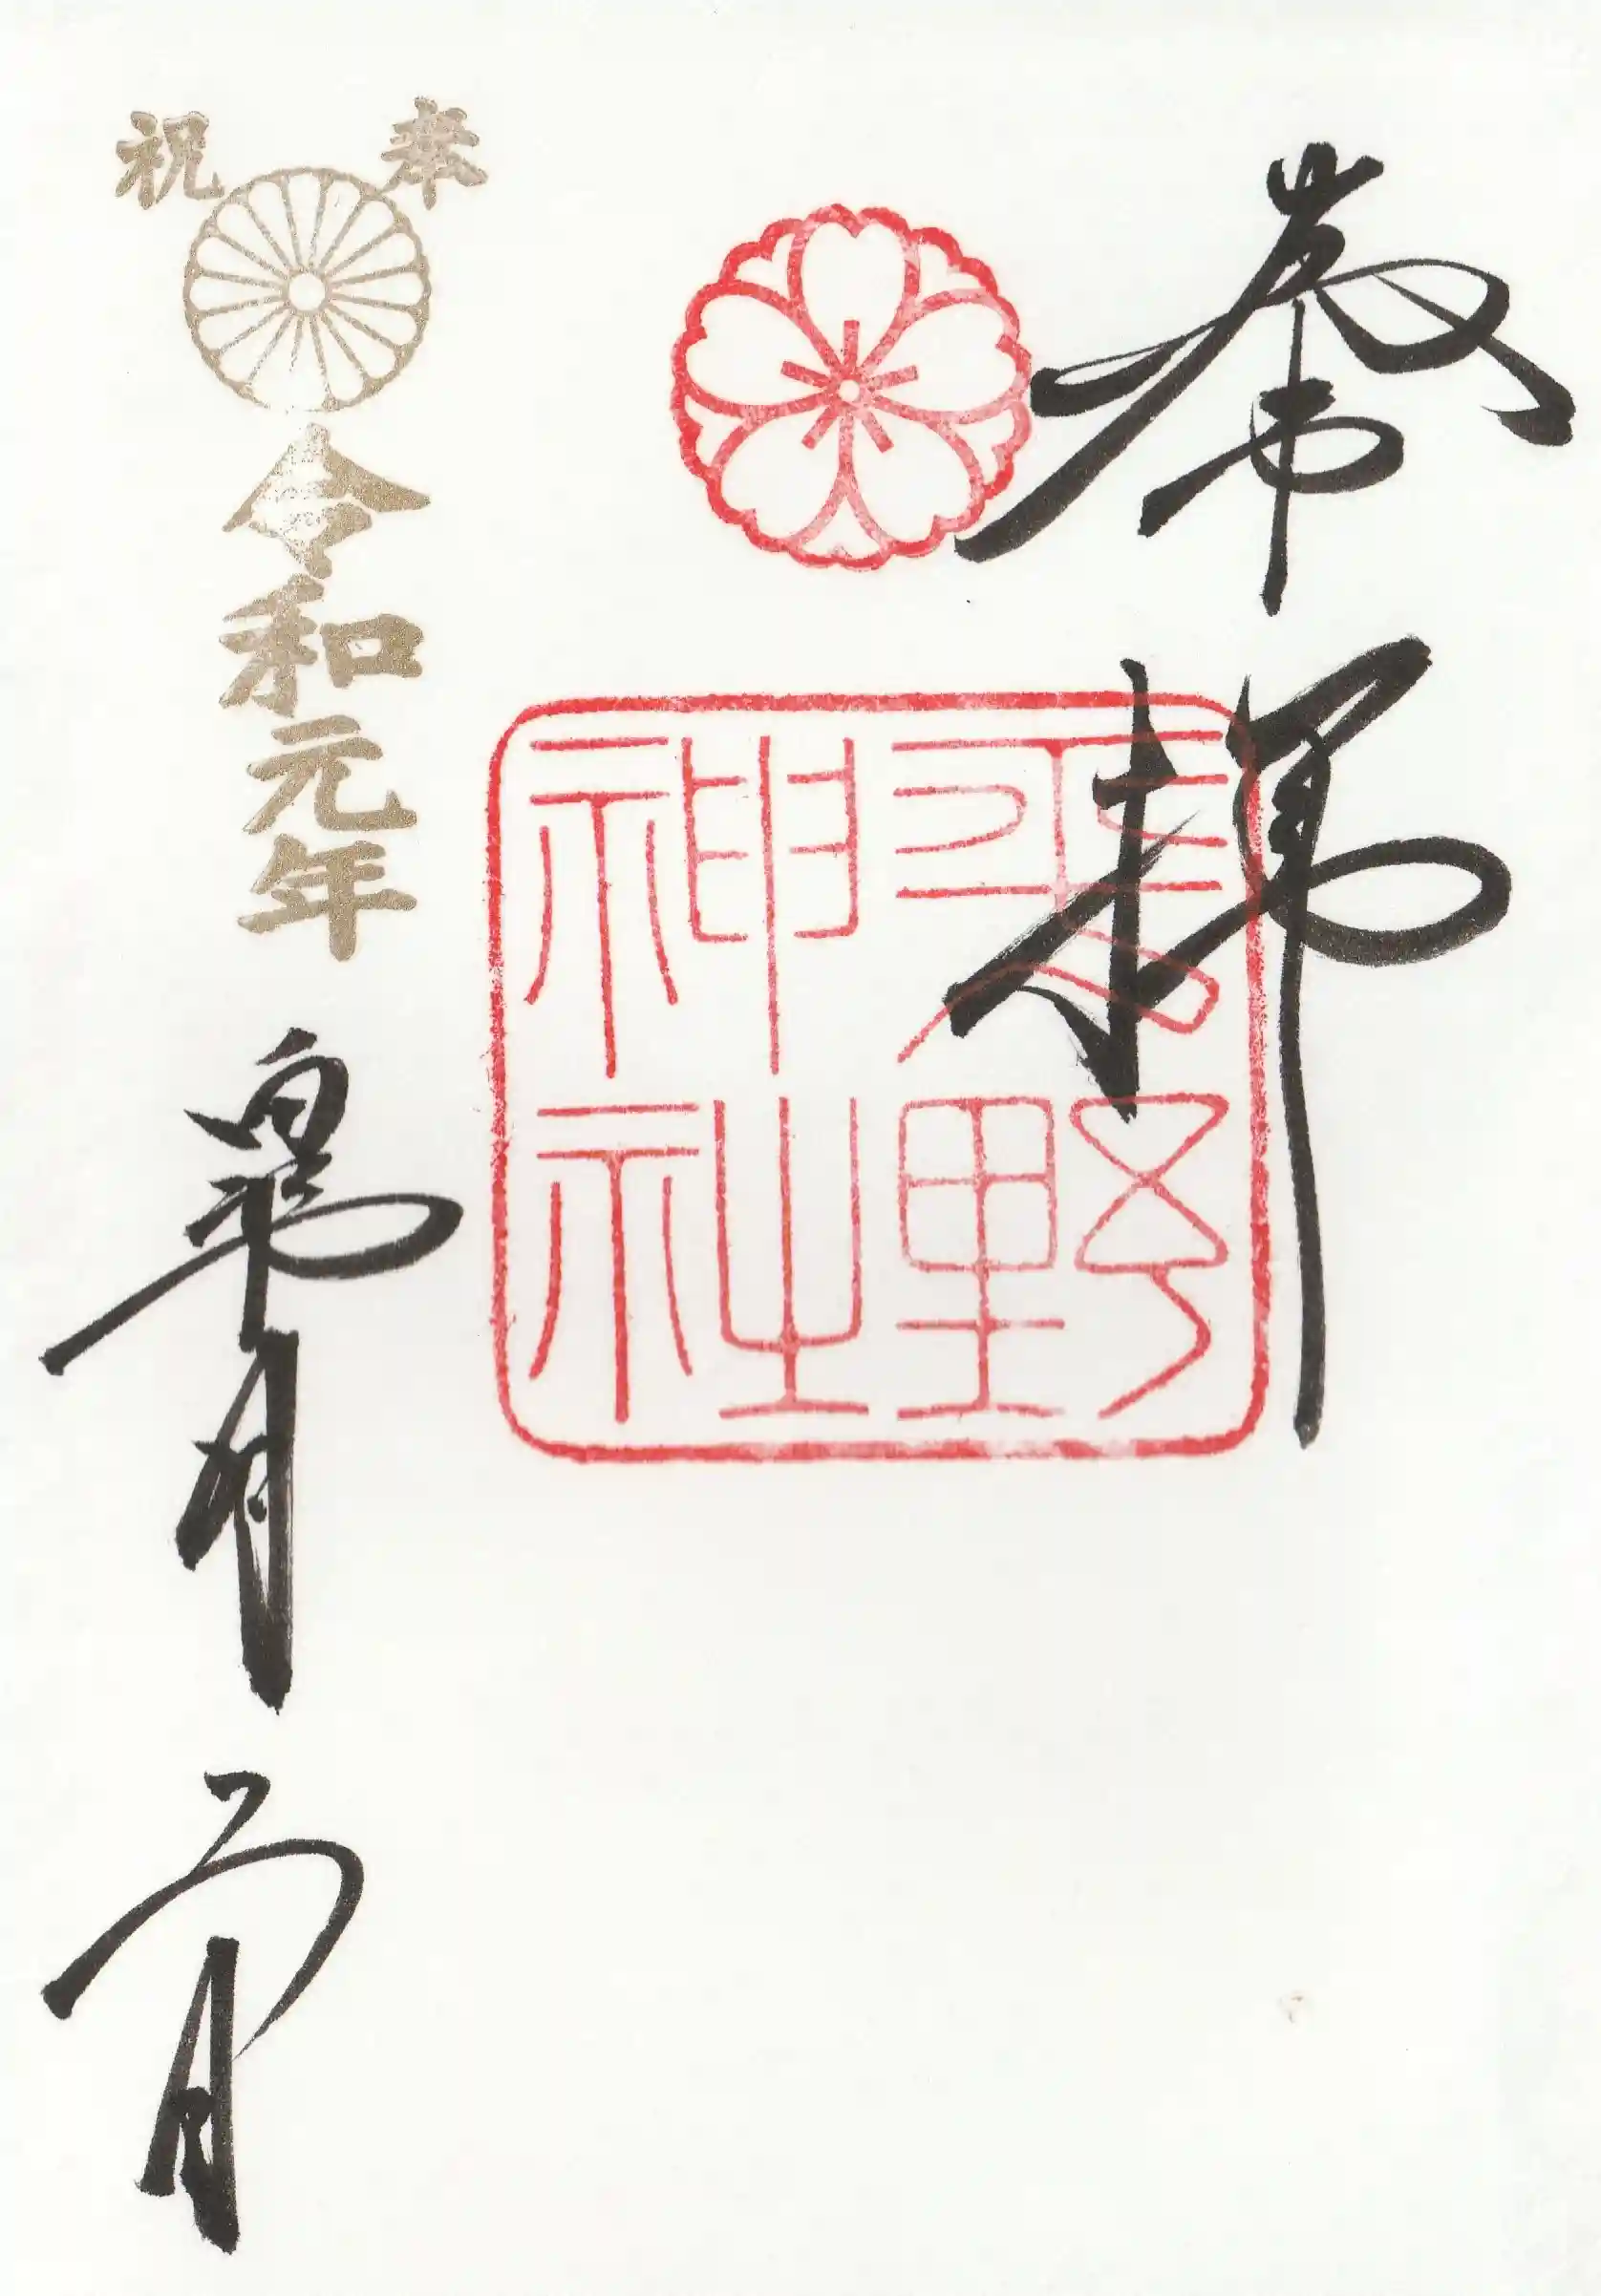 奉拝
平野神社
奉祝
令和元年
皐月 日